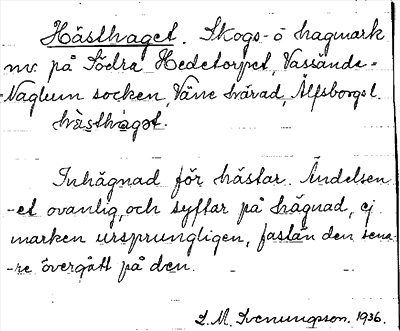 Hästhaget. Skogs- o hagmark
nv. på Södra Hedetorpet, Vassända-
-Naglum socken, Väne härad, Älfsborgs l.
hästhaget.
Inhägnad för hästar. Ändelsen
-et ovanlig, och syftar på hägnad, ej
marken ursprungligen, fastän den sena-
-re övergått på den.
S. M. Svenungson. 1936.